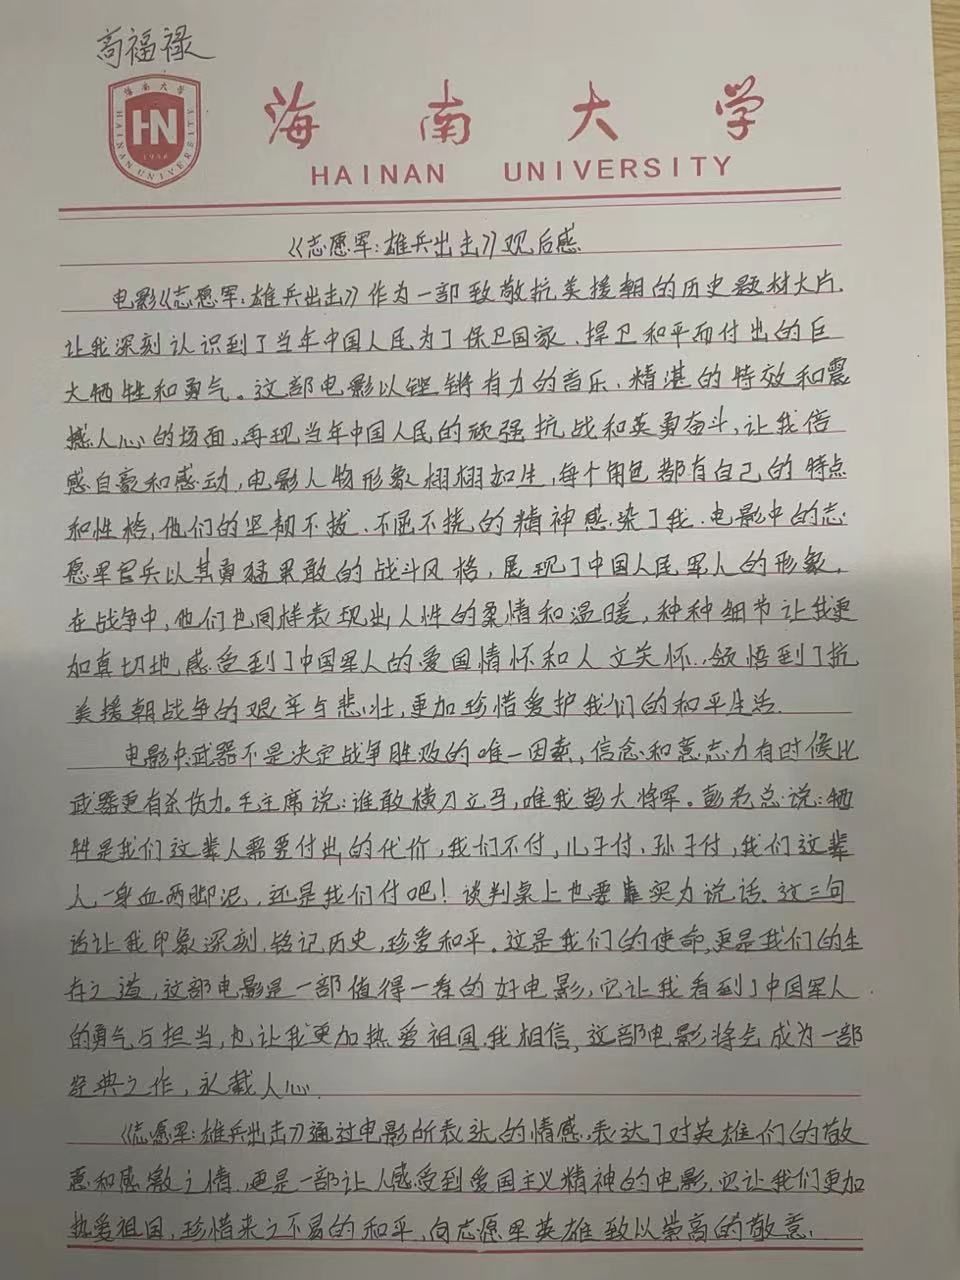 高福禄
海南大学
HAINAN UNIVERSITY
HAINAN UNIVERSITY
海南大学
HN
1958
《志愿军:雄兵出击》观后感
电影《志愿军:雄兵出击》作为一部致敬抗美援朝的历史题材大片,
让我深刻认识到了当年中国人民为了保卫国家、捍卫和平而付出的巨
大牺牲和勇气。这部电影以铿锵有力的音乐、精湛的特效和震
撼人心的场面,再现当年中国人民的顽强抗战和英勇奋斗,让我倍
感自豪和感动,电影人物形象栩栩如生,每个角色都有自己的特点
和性格,他们的坚韧不拔、不屈不挠的精神感染了我.电影中的志
愿军官兵以其勇猛果敢的战斗风格,展现了中国人民军人的形象,
在战争中,他们也同样表现出人性的柔情和温暖,种种细节让我更
加真切地感受到了中国军人的爱国情怀和人文关怀,领悟到了抗
美援朝战争的艰辛与悲壮,更加珍惜爱护我们的和平生活.
电影中武器不是决定战争胜败的唯一因素,信念和意志力有时候比
武器更有杀伤力。毛主席说:谁敢横刀立马,唯我彭大将军。彭老总说:牺
牲是我们这辈人需要付出的代价,我们不付,儿子付,孙子付,我们这辈
人,一身血两脚泥,还是我们付吧!谈判桌上也要靠实力说话.这三句
话让我印象深刻,铭记历史,珍爱和平.这是我们的使命,更是我们的生
存之道,这部电影是一部值得一看的好电影,它让我看到了中国军人
的勇气与担当,也让我更加热爱祖国.我相信,这部电影将会成为一部
经典之作,永载人心.
《志愿军:雄兵出击》通过电影所表达的情感,表达了对英雄们的敬
意和感激之情,更是一部让人感受到爱国主义精神的电影,它让我们更加
热爱祖国,珍惜来之不易的和平,向志愿军英雄致以崇高的敬意.